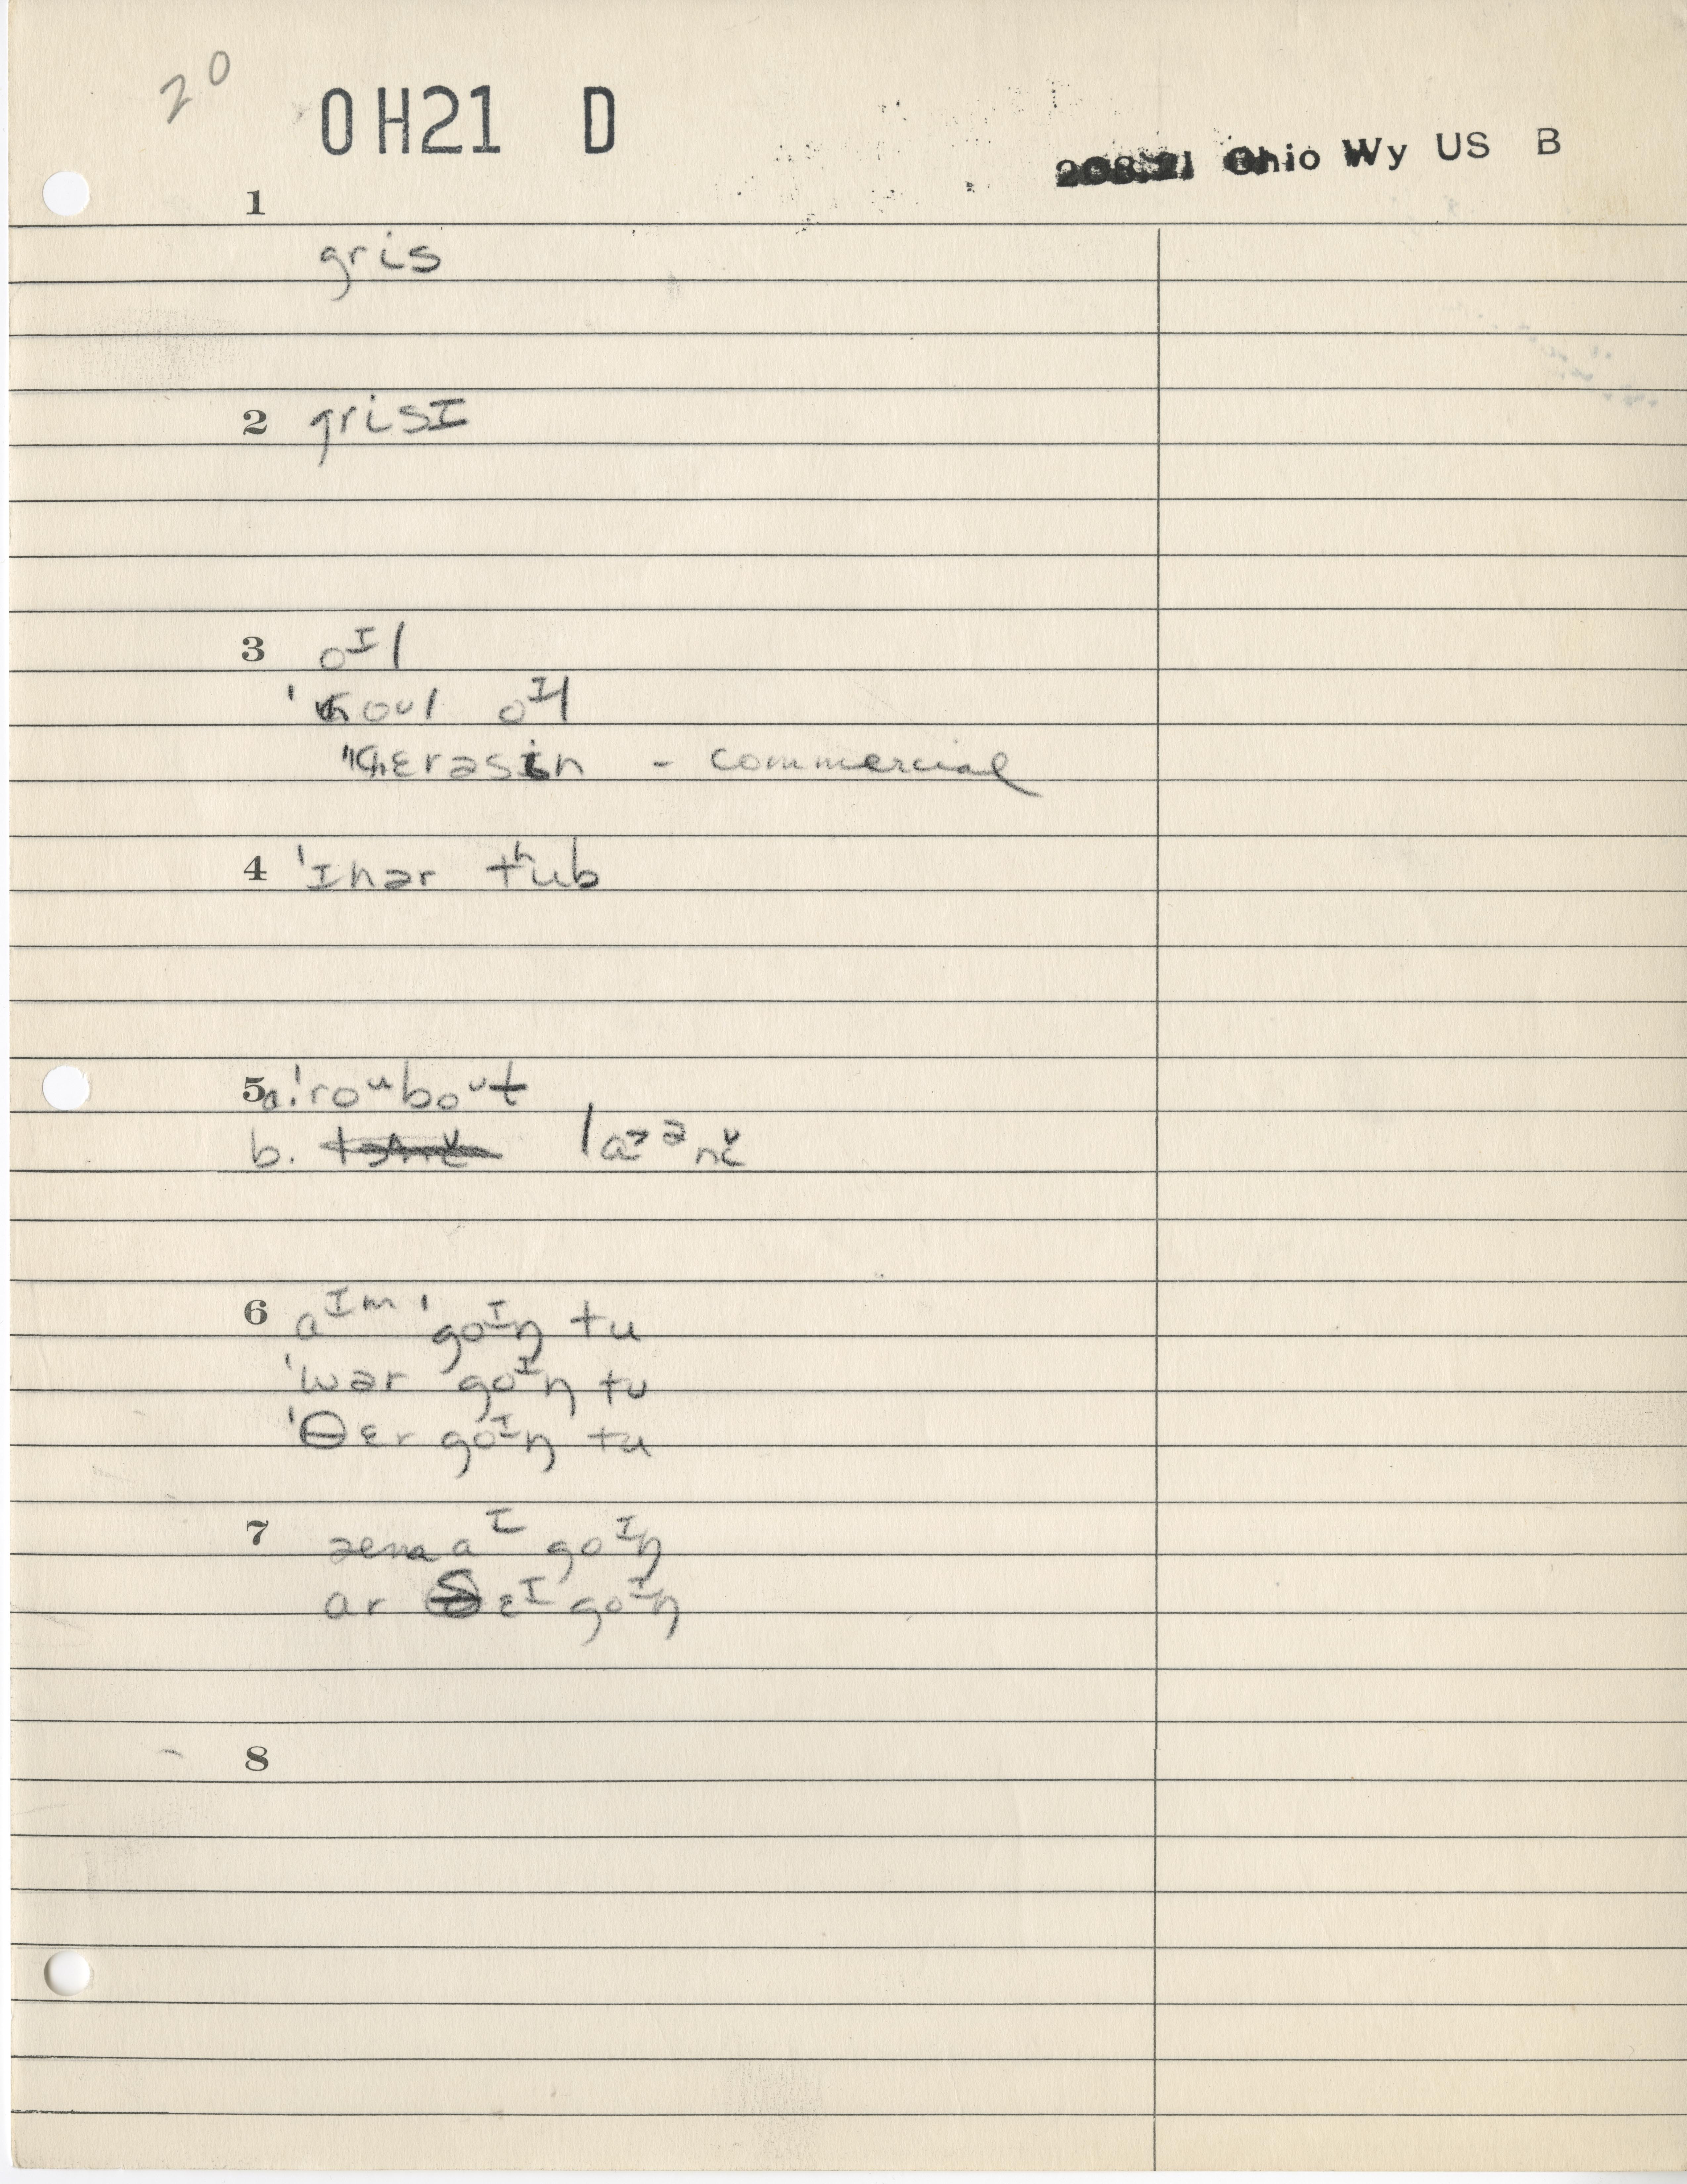 20
OH21 D
208.21 Ohio Wy US B
1
gris
2 grisɪ
3 oᴵl
'kʰoul oᴵl
'kʰɛrəsin - commercial
4 'ɪnər tʰub
5a. 'roᵘboᵘt
b. laᵊnč
6 aᴵm 'goᴵŋ tu
'wər goᴵŋ tu
'θɛr goᴵŋ tu
7 æm aᴵ goᴵŋ
ar ɛᴵ goᴵŋ
8